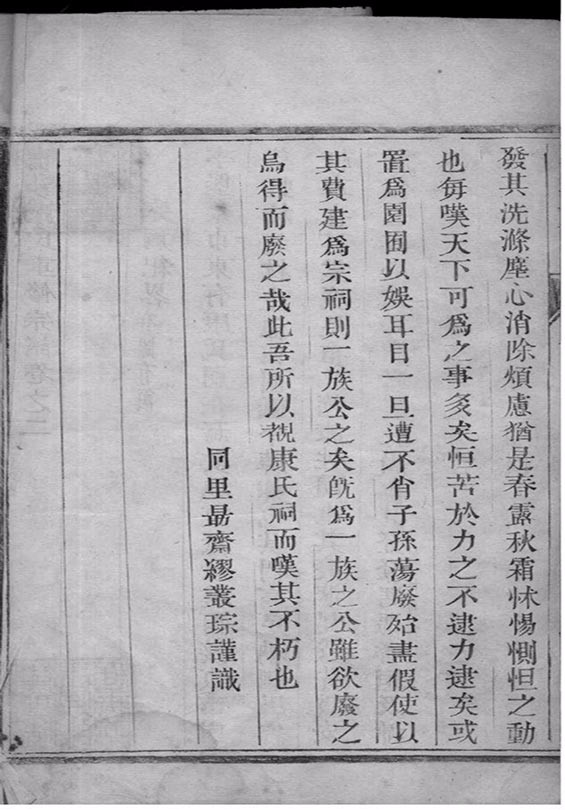 發其洗滌塵心消除煩慮猶是春露秋霜怵惕惻怛之動
也每嘆天下可爲之事多矣恒苦於力之不逮力逮矣或
置爲園囿以娛耳目一旦遭不肖子孫蕩廢殆盡假使以
其費建爲宗祠則一族公之矣旣爲一族之公雖欲廢之
烏得而廢之哉此吾所以覩康氏祠而嘆其不朽也
同里勗齋繆叢琮謹識